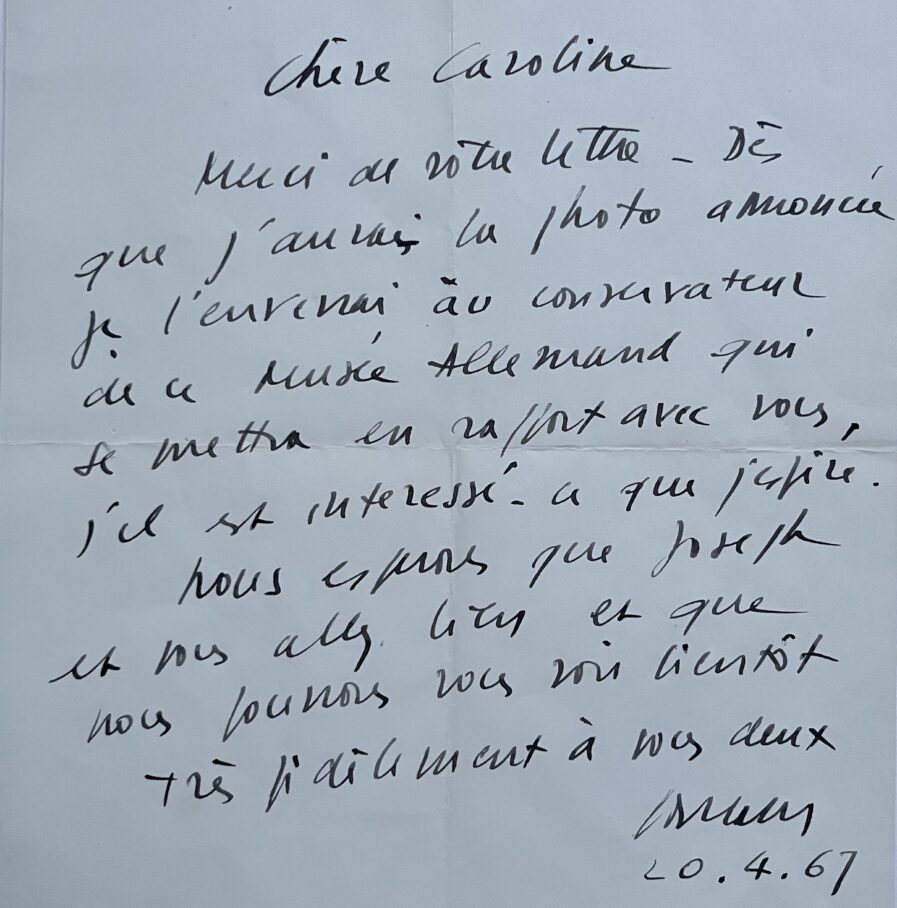 Chère Caroline
Merci de vôtre lettre - Dès
que j'aurais la photo annoncée
je l'enverrai au conservateur
de ce Musée Allemand qui
se mettra en rapport avec vous,
s'il est interessé - ce que j'espère.
Nous esperons que Joseph
et vous allez bien et que
nous pourrons vous voir bientôt
très fidèlement à vous deux
20.4.67